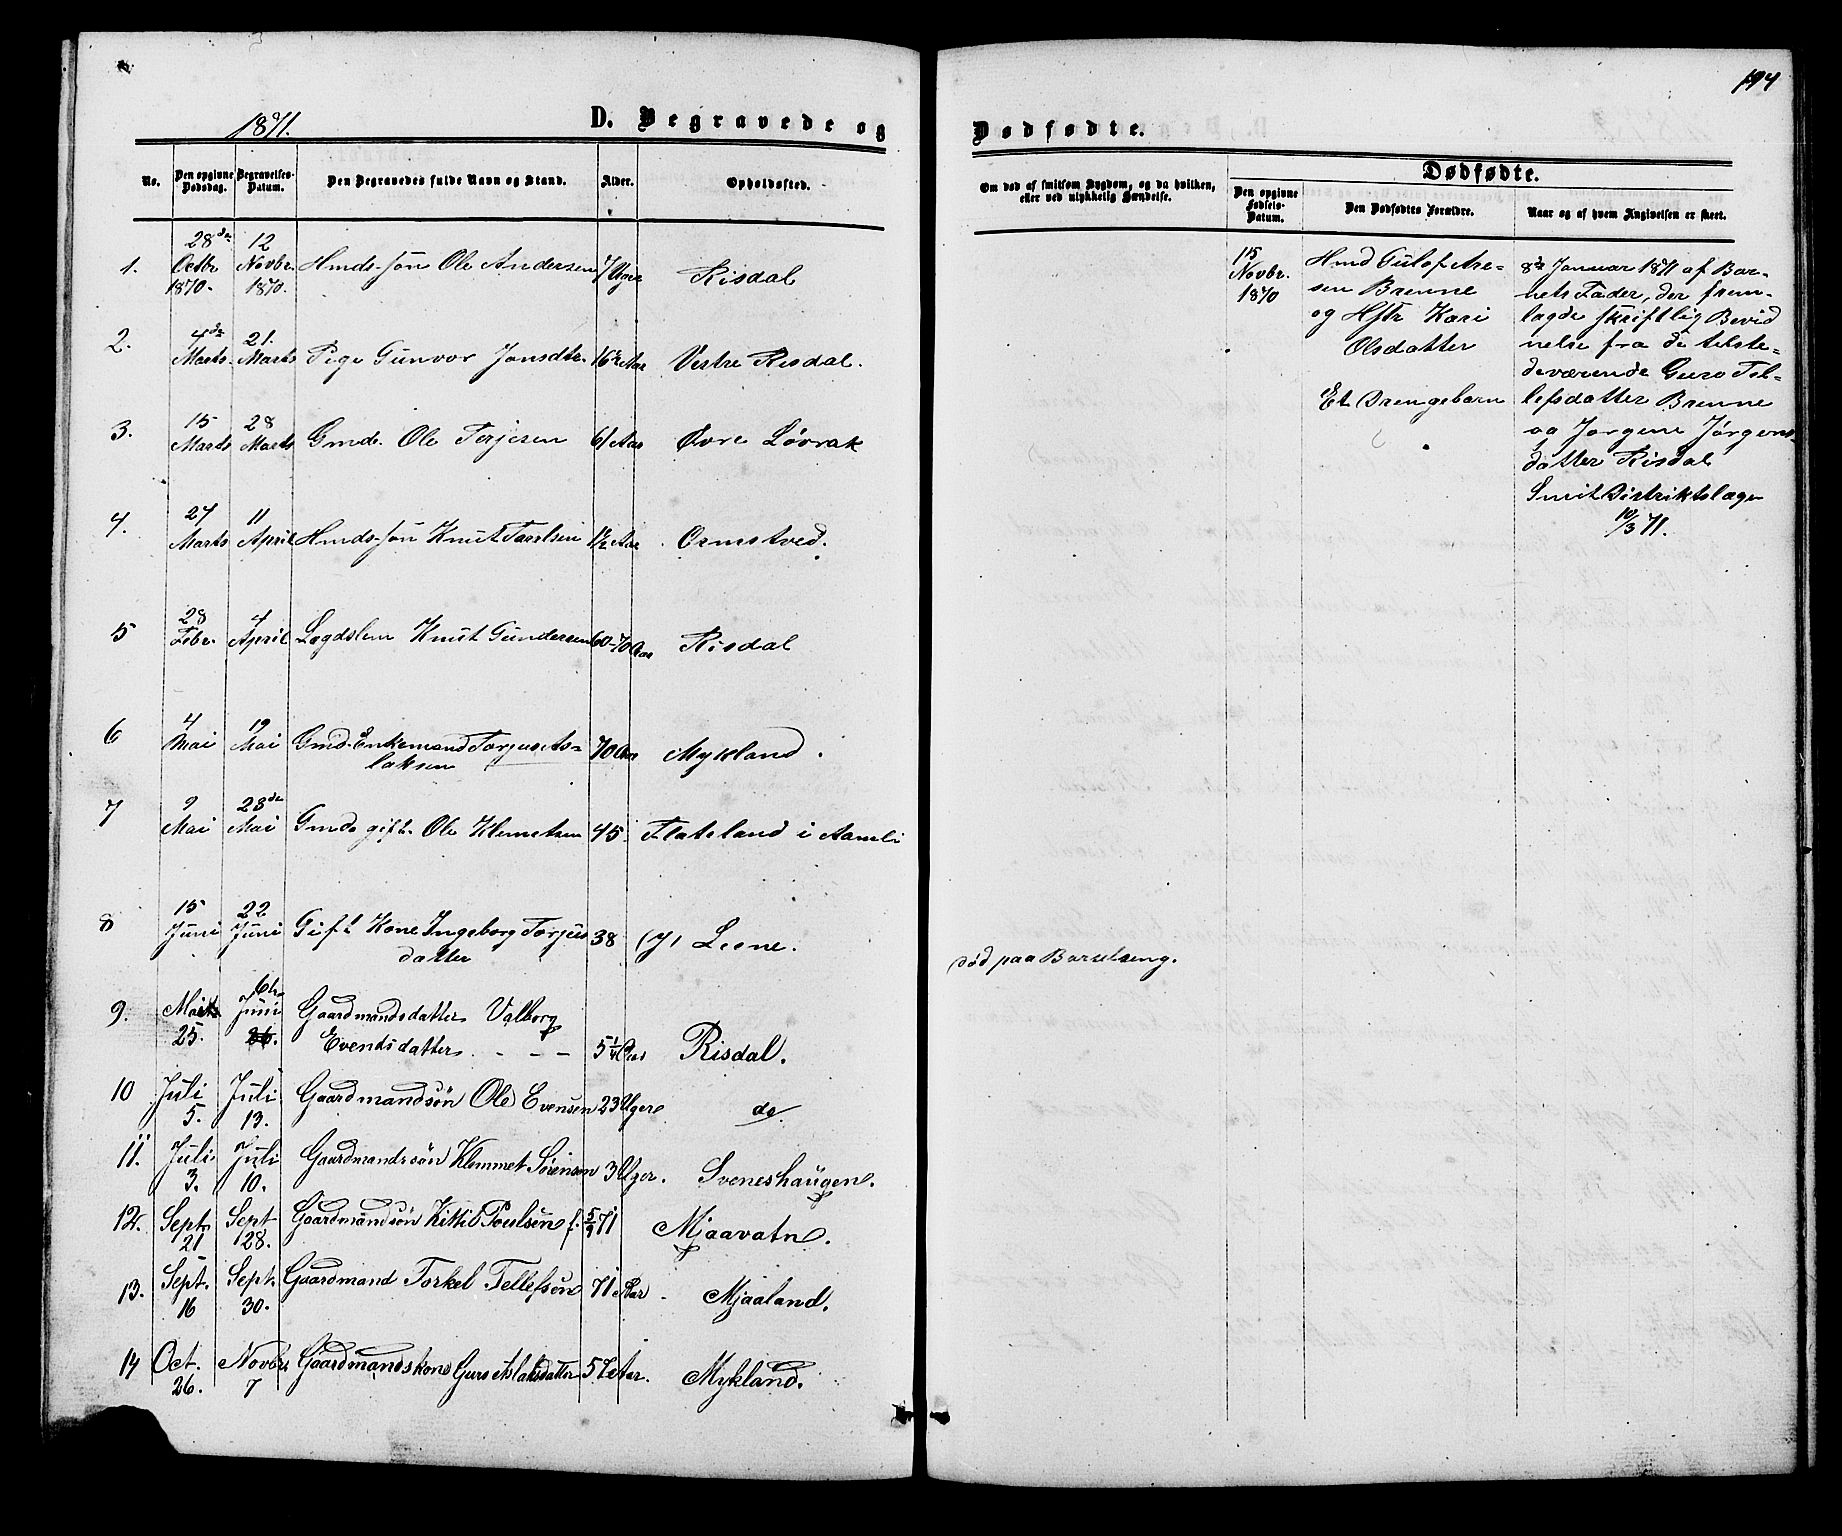 194
1871.
D. Begravede og
Dødfødte.
No.
Den opgivne Dødsdag.
Begravelses-Datum.
Den Begravedes fulde Navn og Stand.
Alder.
Opholdssted.
Om død af smitsom Sygdom, og da hvilken, eller ved ulykkelig Hændelse.
Dødfødte.
Den opgivne Fødsels-Datum.
Den Dødfødtes Forældre.
Naar og af hvem Angivelsen er skeet.
1. 28de Octbr 1870. 12 Novbr. 1870. Hmds. søn Ole Andersen 7 Uger Risdal
2. 4de Marts. 21. Marts Pige Gunvor Jonsdtr. 16½ Aar Vestre Risdal.
3. 15 Marts 28 Marts Gmd. Ole Terjesen 61 Aar Øvre Løvrak
4. 27 Marts 11 April Hmds. søn Knut Tarelsen 1½ Aar Ormstved.
5 28 Febr. 4 April Lægdslem Knut Gundersen 60-70 Aar Risdal
6 4 Mai 19 Mai Gmd. Enkemand Torjus As-
laksen 70 Aar Mykland.
7 9 Mai 28de Mai Gmd. gift. Ole Klemetsen 45 Flateland i Aamli
8 15 Juni 22 Juni Gift Kone Ingeborg Torjus
datter 38 Leone.
død paa Barselseng.
9. 25. 6te Juni Gaardmandsdatter Valborg
Evendsdatter 5¼ Aar Risdal.
10 Juli 5. Juli 13. Gaardmandsøn Ole Evensen 23 Uger do.
11. Juli 3. Juli 10. Gaardmandssøn Klemmet Sørensen 3 Uger. Sveneshaugen.
12. Sept. 21 Sept 28. Gaardmandsøn Kittil Poulsen f. 5/9 71 Mjaavatn.
13. Sept. 16 Sept. 30. Gaardmand Torkel Tellefsen 71 Aar Mjaaland.
14 Oct. 26. Novbr 7 Gaardmandskone Guro Aslaksdatter 57 Aar. Mykland.
15 Novbr. 1870
Hmd Gulof Are-
sen Brenne
og Hstr Kari
Olsdatter
Et Drengebarn
8de Januar 1871 af Bar-
nets Fader, der frem-
lagde skriftlig Bevid
nelse fra de tilste-
deværende Guro Tel-
lefsdatter Brenne
og Jorgine Jørgens-
datter Risdal
Smit Distriktslæge
10/3 71.